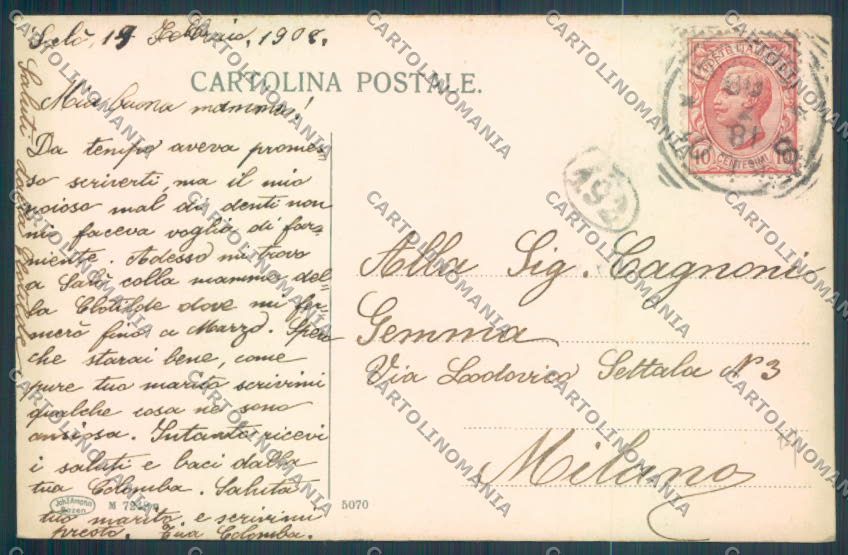 Salò, 19 Febbraio, 1908.
CARTOLINA POSTALE.
Mia buona mamma!
Da tempo aveva promes-
so scriverti, ma il mio
noioso mal di denti non
mi faceva voglia di far
niente. Adesso mi trovo
a Salò colla mamma del-
la Clotilde dove mi fer-
merò fino a Marzo. Spero
che starai bene, come
pure tuo marito scrivimi
qualche cosa ne sono
ansiosa. Intanto ricevi
i saluti e baci dalla
tua Colomba. Saluta
tuo marito e scrivimi
presto. Tua Colomba.
Saluti dalla Clotilde
POSTE ITALIANE
10 CENTESIMI 10
08
18
492
Alla Sig. Cagnoni
Gemma
Via Lodovico Settala N° 3
Milano
Joh. F. Amonn
Bozen
5070
CARTOLINOMANIA